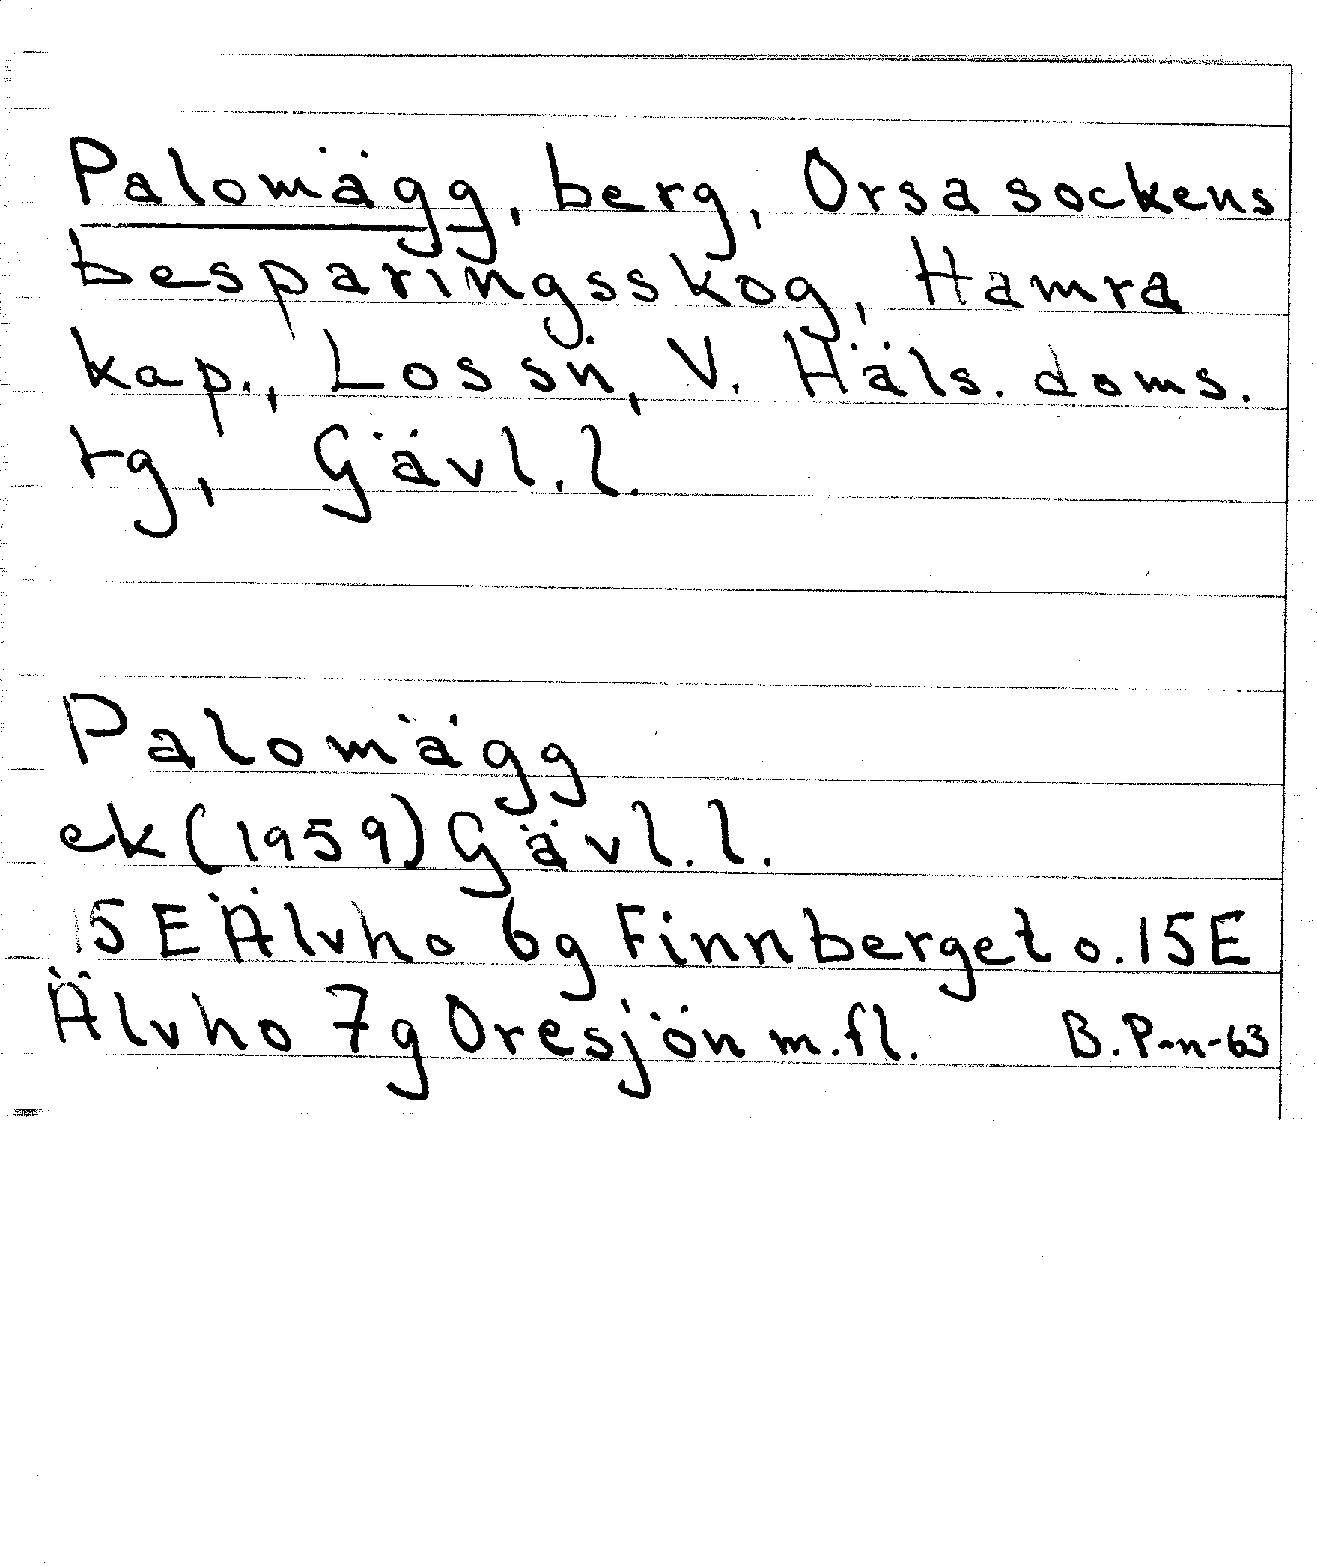 Palomägg, berg, Orsa sockens
besparingsskog, Hamra
kap., Lossn, V. Häls. doms.
rg, Gävl.l.
Palomägg
ek (1959) Gävl.l.
15E Älvho 6g Finnberget o. 15E
Älvho 7g Oresjön m.fl. B.P-n-63